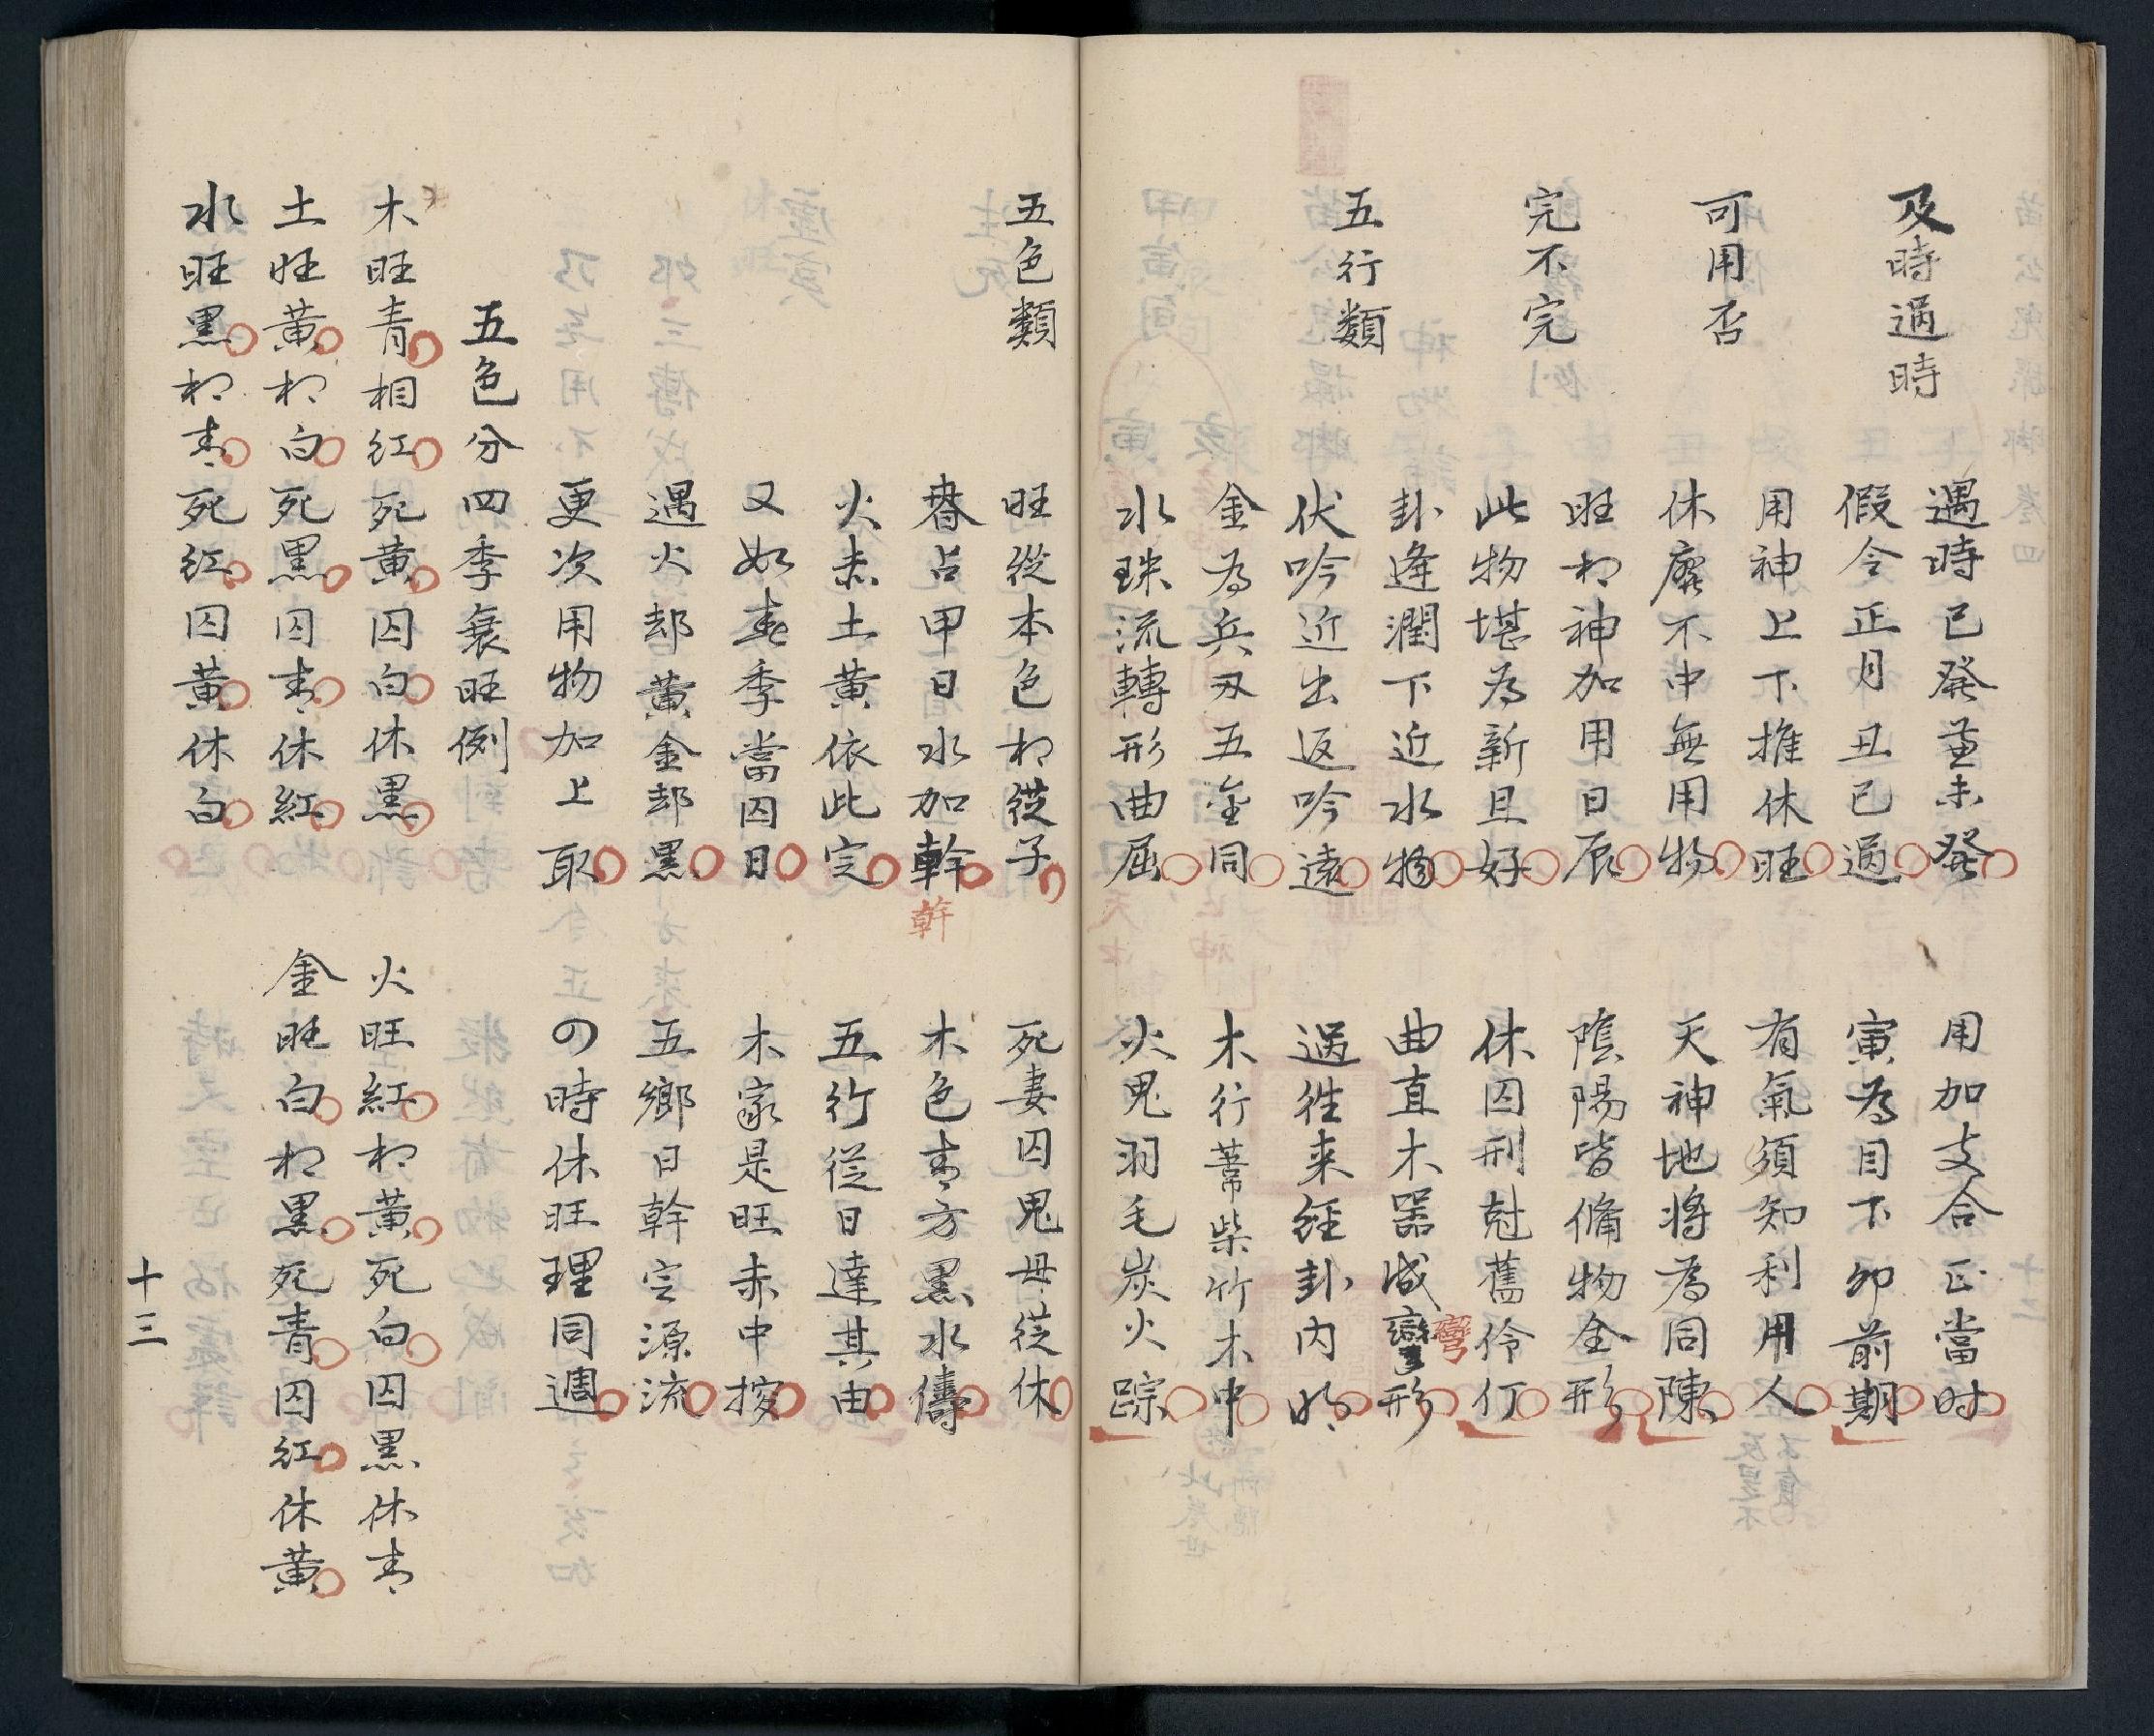 及時過時
遇時已發並未發 用加支合正當时
假令正月丑已過 寅為目下卯前期
可用否
用神上下推休旺 有氣須知利用人
休廢不中無用物 天神地將為同陳
完不完
旺相神加用日辰 陰陽皆備物全形
此物堪為新且好 休囚刑尅舊伶仃
五行類
卦逢潤下近水物 曲直木器咸彎形
伏吟近出返吟遠 過往来經卦内明
金為兵刃五金同 木行葦柴竹木中
水珠流轉形曲屈 火鬼羽毛炭火踪
五色類
旺從本色相從子 死妻囚鬼母從休
春占甲日水加幹 木色青方黑水儔
幹
火赤土黄依此定 五行從日達其由
又如春季當囚日 木家是旺赤中按
遇火却黄金却黑 五鄉日幹定源流
更次用物加上取 四時休旺理同週
五色分四季衰旺例
木旺青相紅死黄囚白休黑 火旺紅相黄死白囚黑休青
土旺黄相白死黑囚青休紅 金旺白相黑死青囚紅休黄
水旺黑相青死紅囚黄休白
十三